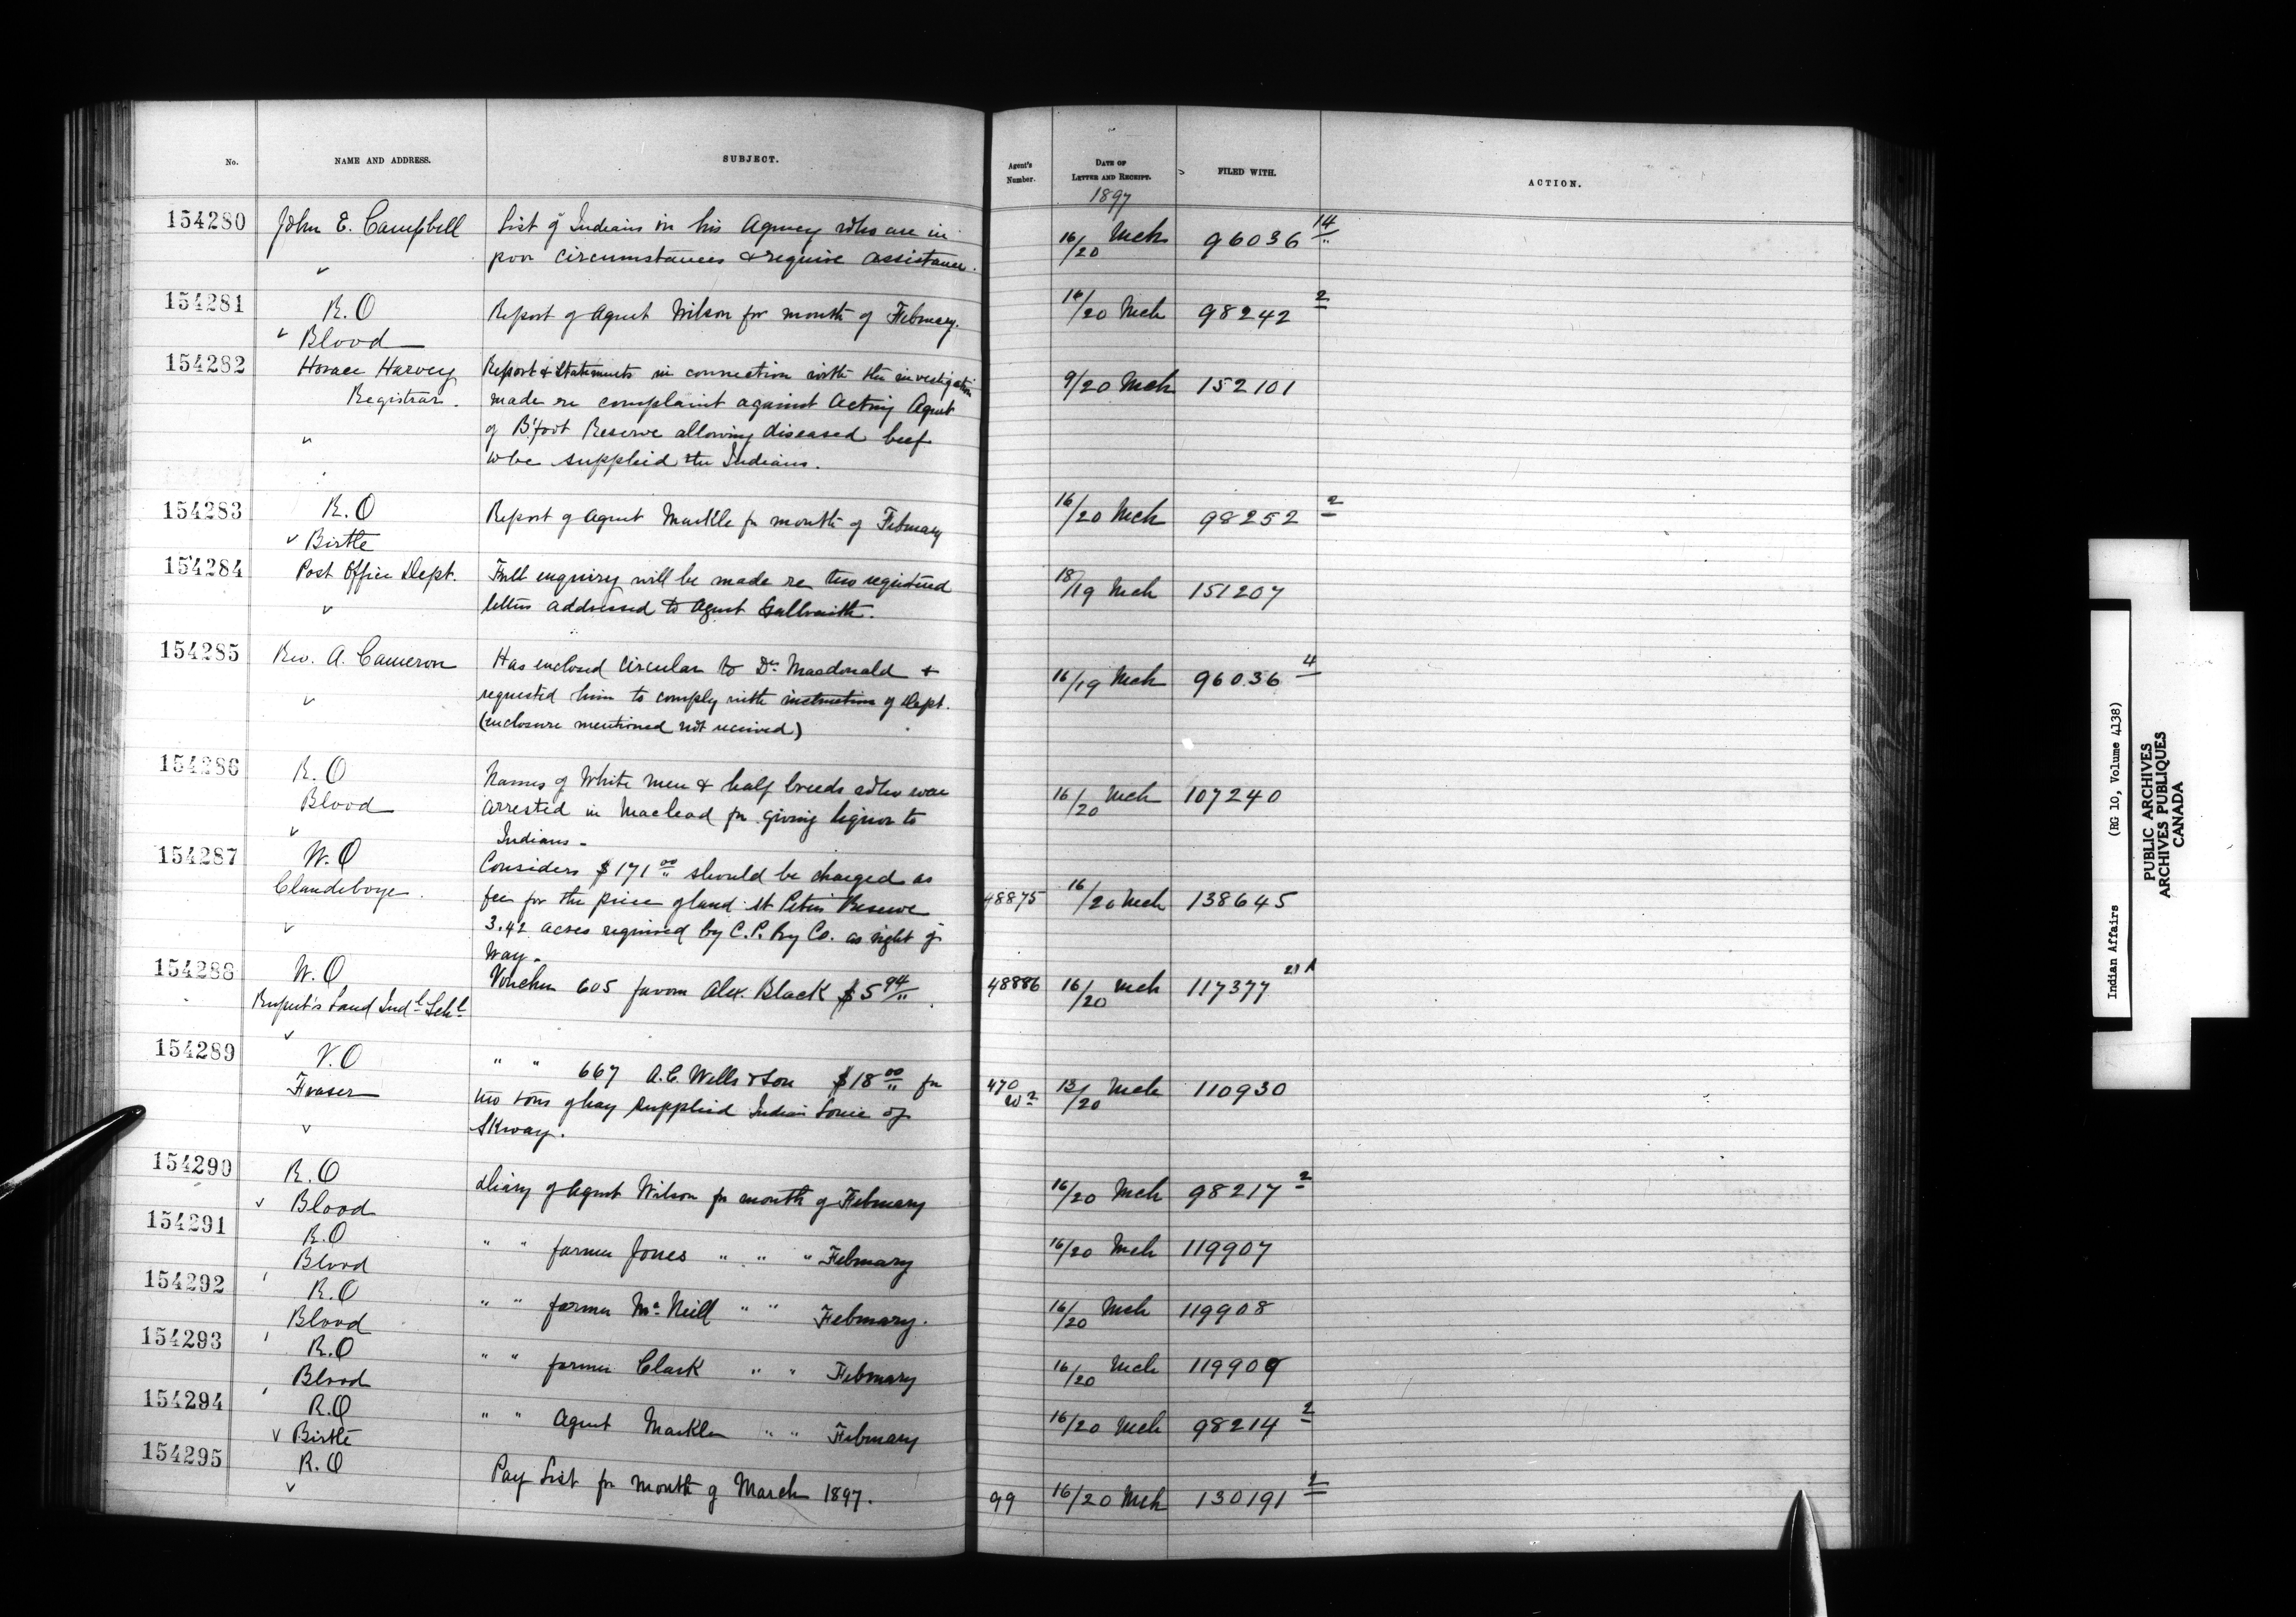 No. NAME AND ADDRESS. SUBJECT. Agent's Number. DATE OF LETTER AND RECEIPT. FILED WITH. ACTION.
1897
154280 John E. Campbell List of Indians in his Agency who are in 16/20 Mch 96036 14
poor circumstances & require assistance.
154281 R.O Report of Agent Wilson for month of February. 16/20 Mch 98242 2
Blood
154282 Horace Harvey Report & Statements in connection with the investigation 9/20 Mch 152101
Registrar. made re complaint against Acting Agent
of B'foot Reserve allowing diseased beef
to be supplied the Indians.
154283 R.O Report of Agent Markle for month of February 16/20 Mch 98252 2
Birtle
154284 Post Office Dept. Full enquiry will be made re two registered 18/19 Mch 151207
letters addressed to Agent Galbraith.
154285 Rev. A. Cameron Has enclosed circular to Dr. Macdonald & 16/19 Mch 96036 4
requested him to comply with instruction of Dept.
(enclosure mentioned not received)
154286 R.O Names of White men & half breeds who were
Blood arrested in Macleod for giving liquor to 16/20 Mch 107240
Indians.
154287 W.O Considers $171 00 should be charged as
Clandeboye. fee for the price of land St Peters Reserve 48875 16/20 Mch 138645
3.42 acres required by C.P. Ry Co. as right of
way.
154288 W.O Voucher 605 favor Alex. Black $5 94 48886 16/20 Mch 117377 21 A
Rupert's Land Indl Schl
154289 V.O " " 667 A.C. Wells & Son $18 00 for 470 13/20 Mch 110930
Fraser two tons of hay supplied Indian Louie of W2
Skway.
154290 R.O Diary of Agent Wilson for month of February 16/20 Mch 98217 2
Blood
154291 R.O " " farmer Jones " " " February 16/20 Mch 119907
Blood
154292 R.O " " farmer McNeill " " February. 16/20 Mch 119908
Blood
154293 R.O " " farmer Clark " " February 16/20 Mch 119909
Blood
154294 R.O " " Agent Markle " " February 16/20 Mch 98214 2
Birtle
154295 R.O Pay List for month of March 1897. 99 16/20 Mch 130191 2
Indian Affairs (RG 10, Volume 4138)
PUBLIC ARCHIVES
ARCHIVES PUBLIQUES
CANADA